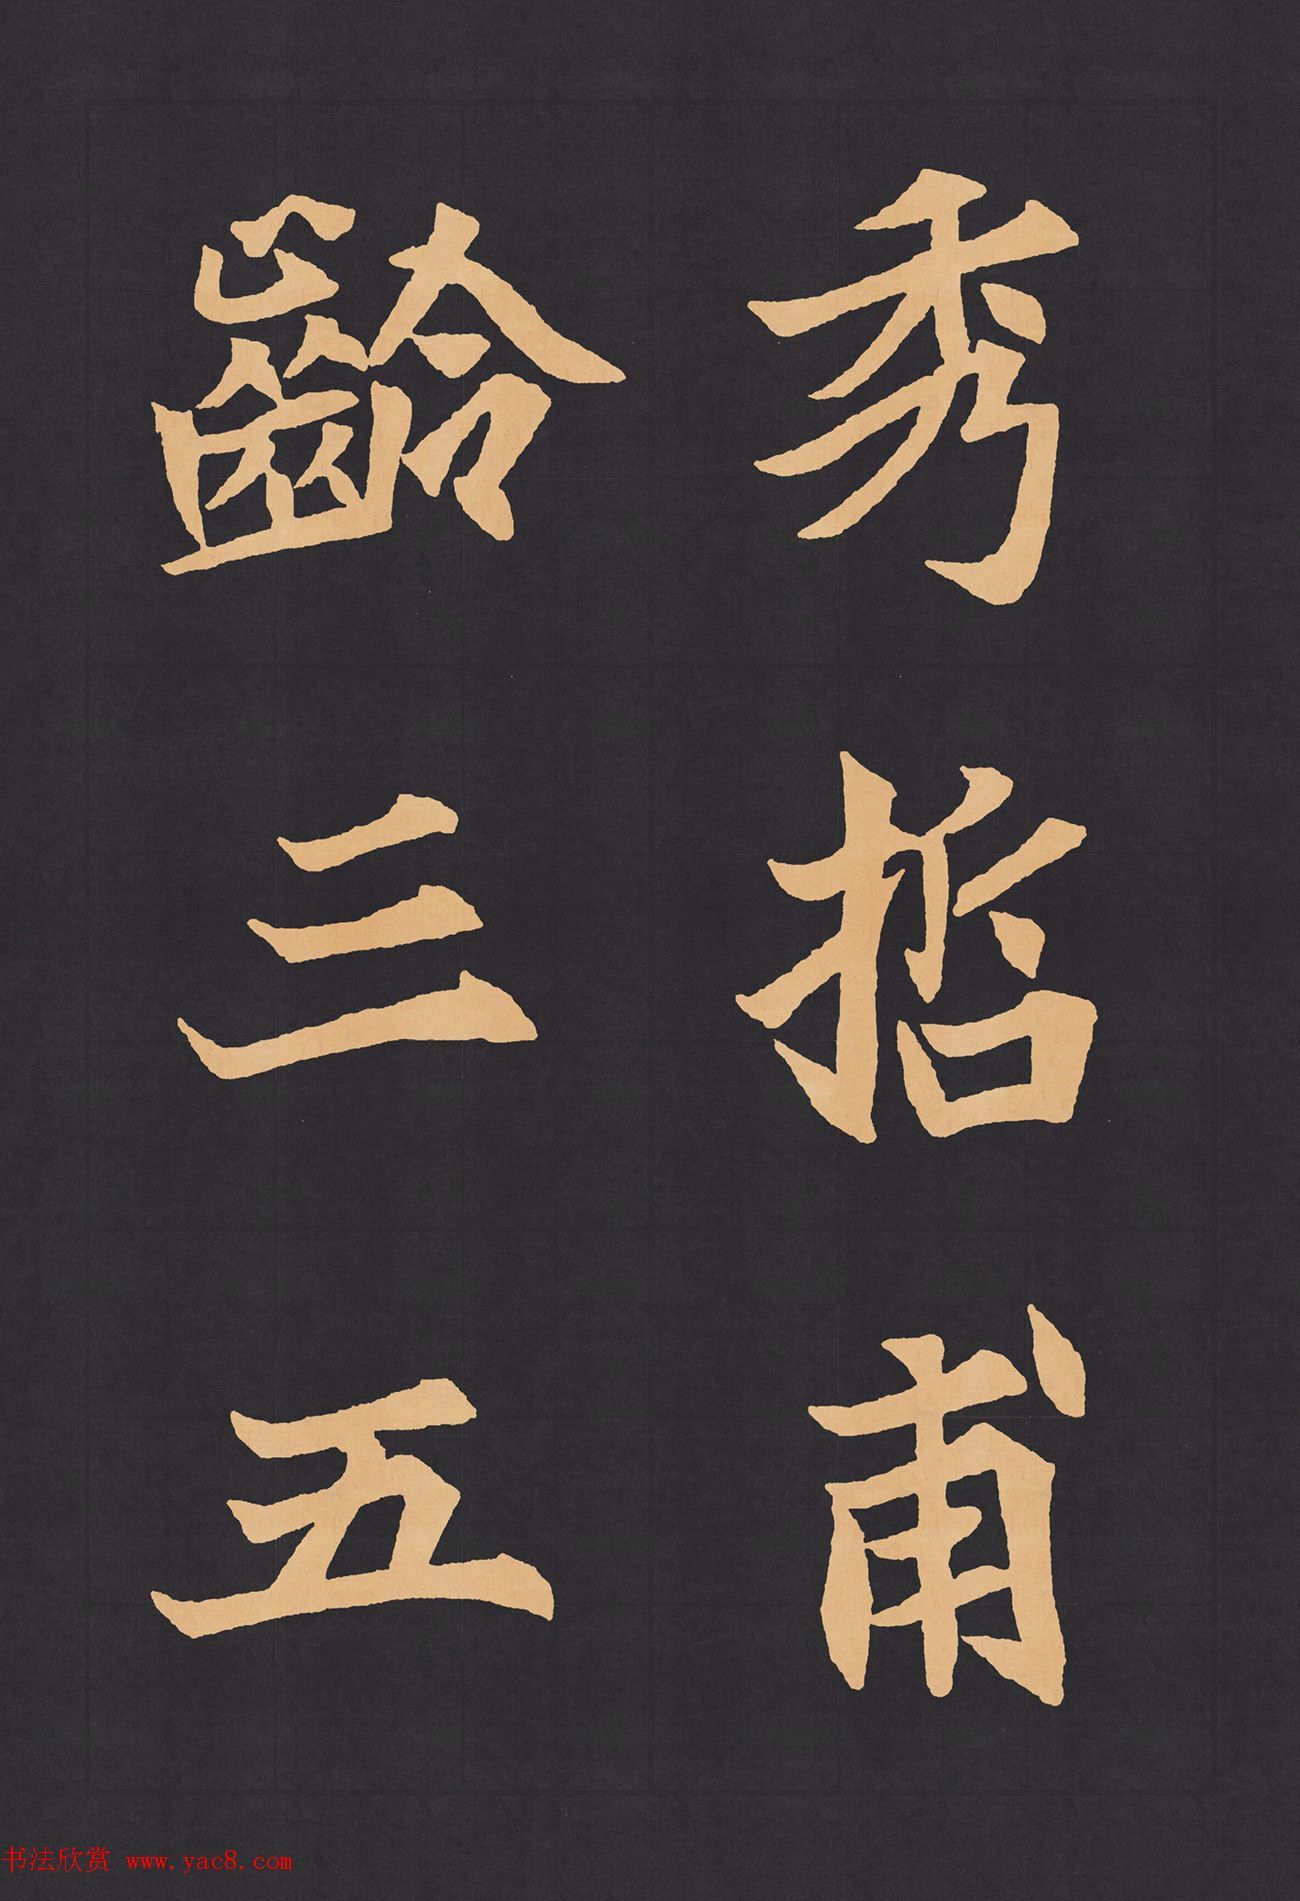 秀哲甫
齡三五
书法欣赏 www.yac8.com